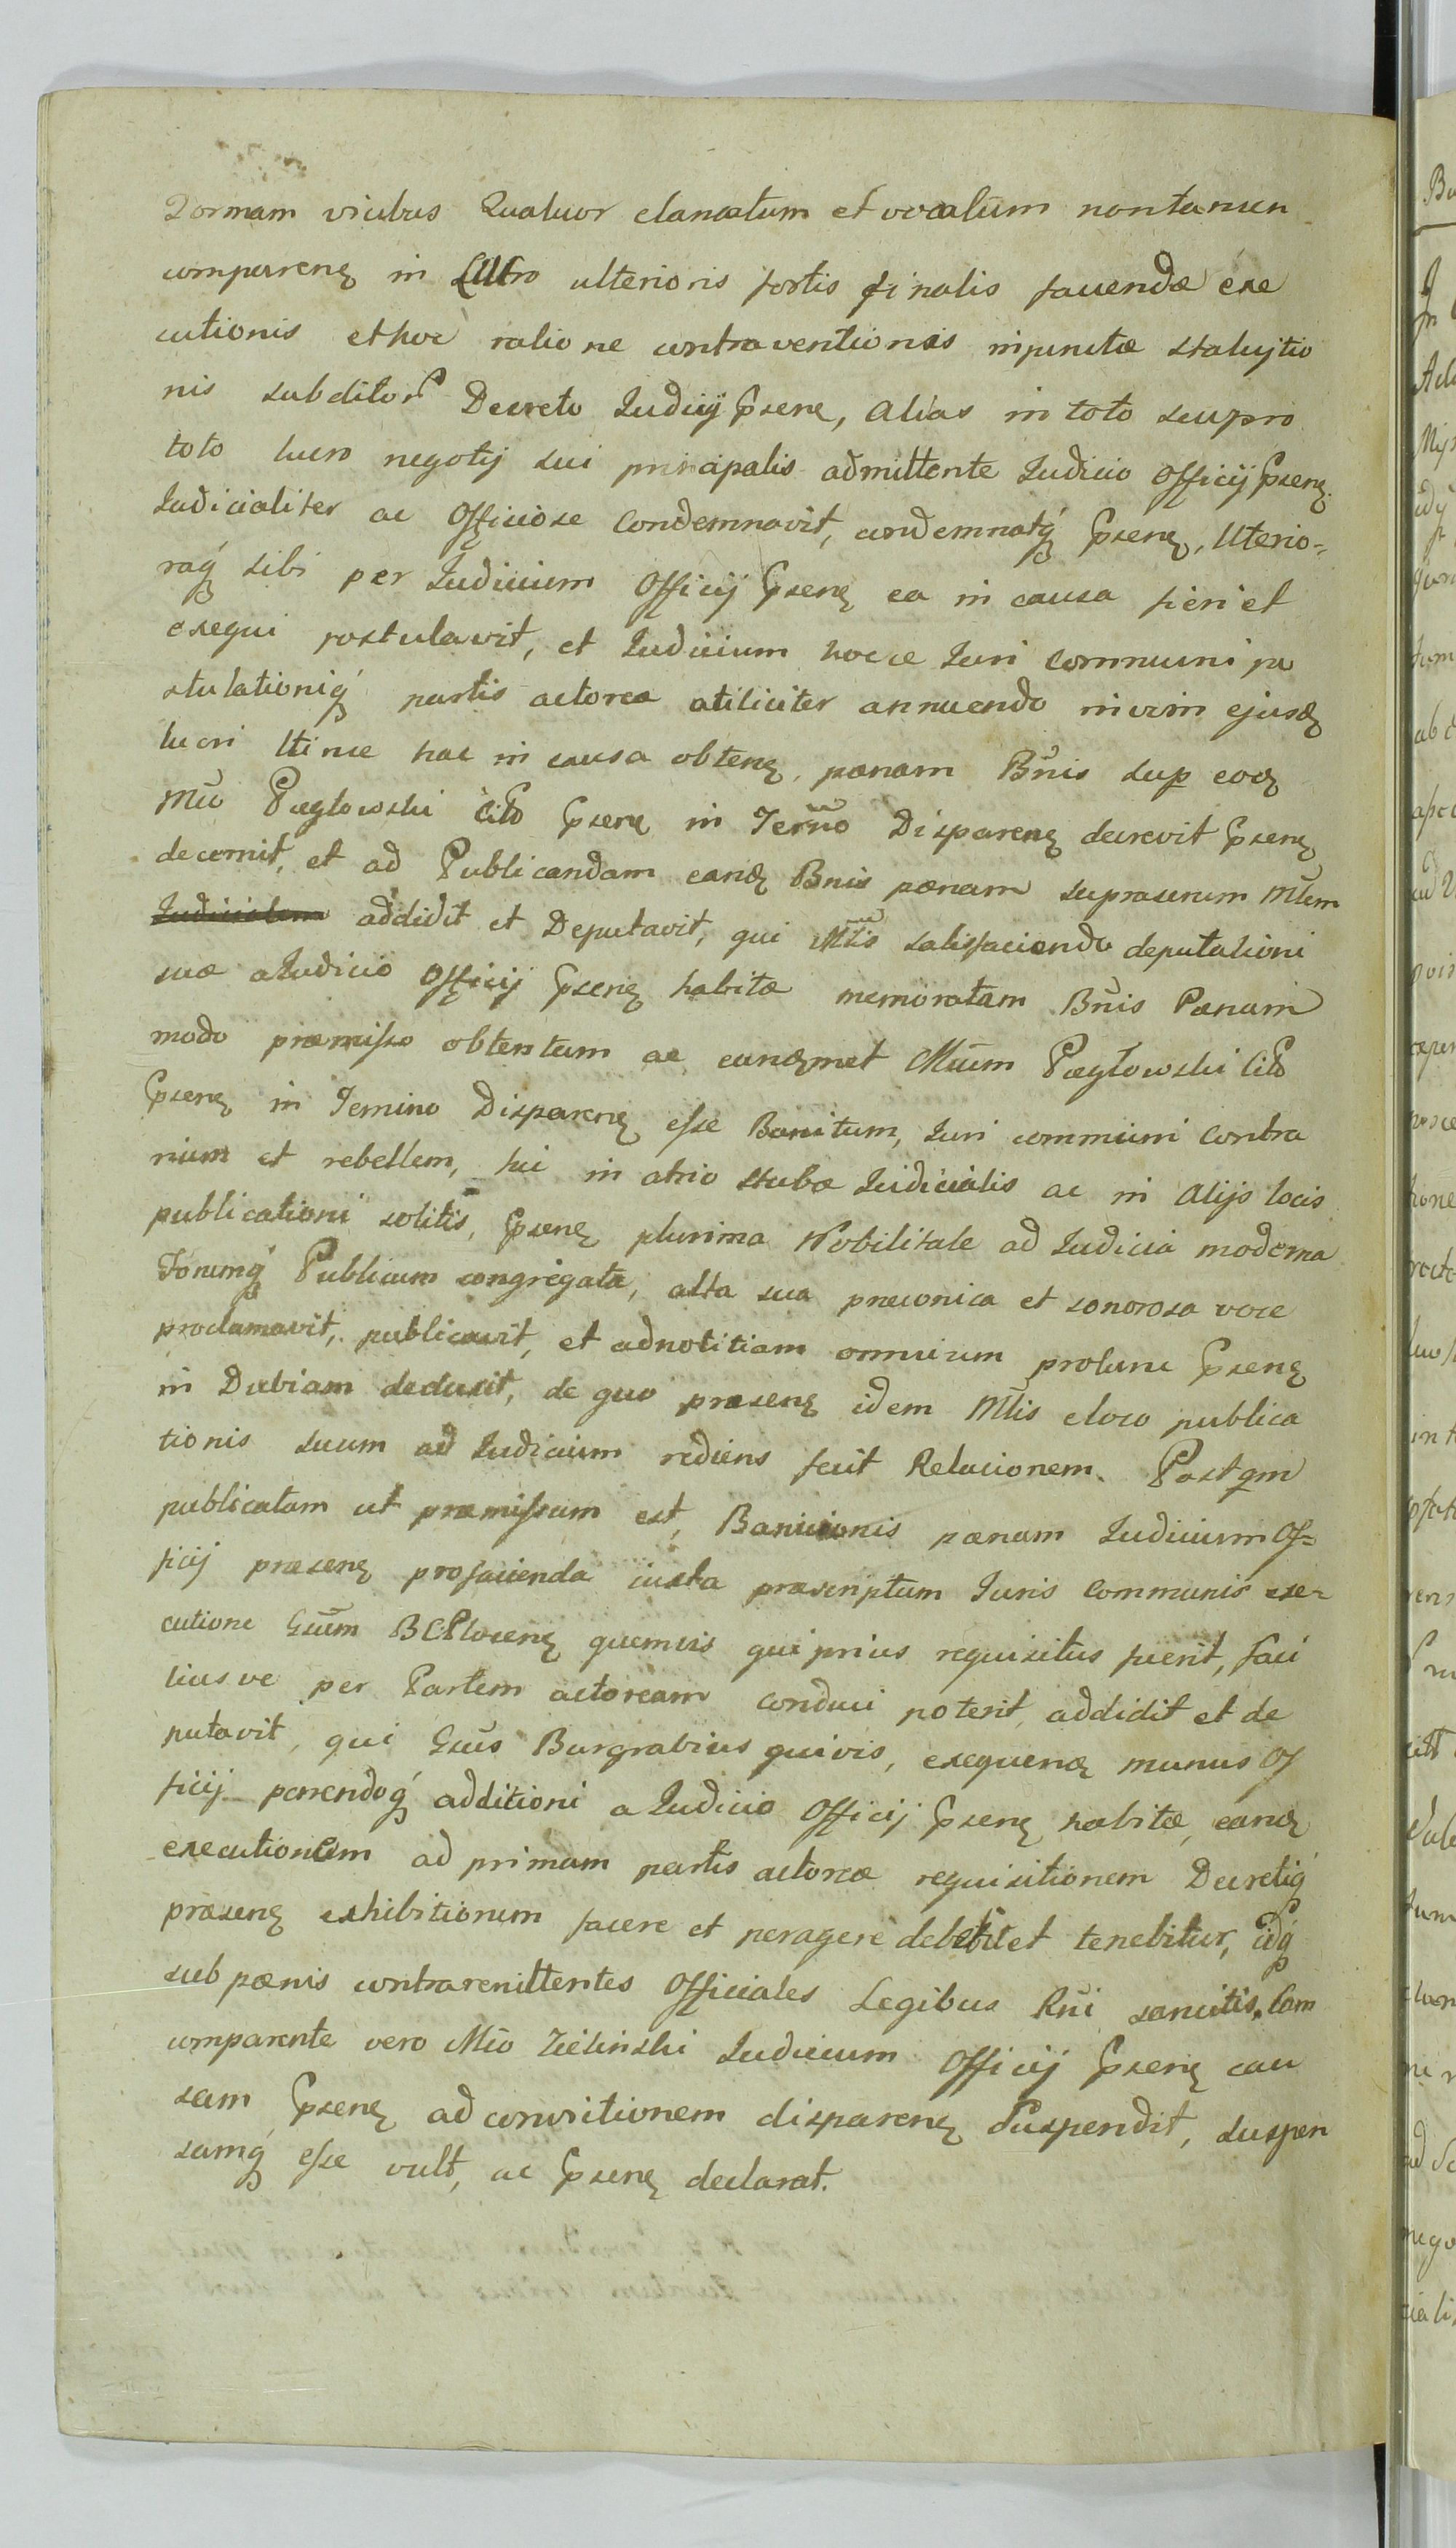 vicibus Quatuor clamatum et vocatum nontamen
comparenꝫ in ulterioris fortis finalis favendæ exe
cutionis ethoc ratione contraventionis injunctæ stalujtio
nis subditor Decreto Judicij Psenę, Alias in toto seu pro
toto lucro negotij sui principalis admittente Judicio Officij Psenꝫ
Judicialiter ac Officiose Condemnavit, condemnatq́ꝫ Psenꝫ, Uterio-
raq́ꝫ sibi per Judicium Officij Psenꝫ ea in causa fieri et
exequi postulavit, et Judicium hocce Juri Communi po
stulationiq́ꝫ partis actoreæ annuendo invim ejusdꝫ
lucri hac in causa obtenꝫ pœnam Bn̄is sup eodꝫ
Mḡo Pægłowski Cito Psenꝫ in Terño Disparenꝫ decrevit Psenꝫ
decernit, et ad Publicandam eandꝫ Bnis pœnam suprascrum Mlem
Judicialem addidit et Deputavit, qui Mlis satisfaciendo deputationi
suæ a Judicio Officij Psenꝫ habitæ memoratam Bn̄is Pœnam
modo præmisso obtentam ac eundꝫmet Mḡum Pægłowski Cito
Psenꝫ in Temino Disparenꝫ esse Banitum, Juri communi Contra
rium et rebellem, hic in atrio stubæ Judicialis ac in Alijs locis
publicationi solitis, Psenꝫ plurima Nobilitate ad Judicia moderna
Forumq́ꝫ Publicum congregata, alta sua preconica et sonorosa voce
proclamavit, publicavit, et adnotitiam omnium protunc Psenꝫ
in Dubiam deduxit, de quo præsenꝫ idem Mlis eloco publica
tionis suum ad Judicium rediens fecit Relacionem. Postqm
publicatam ut præmissum est, Banicionis pœnam Judicium Of-
ficij præsenꝫ profacienda iuxta præscriptum Juris Communis exe-
cutione Gsum BCPlocenꝫ quemvis qui prius requisitus fuerit, faci
liusve per Partem actoream conduci poterit, addidit et de
putavit, qui Gsus Burgrabius quivis, exequendꝫ munus Of
ficij parendoq́ꝫ additioni a Judicio Officij Psenꝫ habitæ, eandꝫ
executionem ad primam partis actoreæ requisitionem Decretiq́ꝫ
præsenꝫ exhibitionem facere et peragere debebit et tenebitur, idq́ꝫ
sub pænis contrarenittentes Officiales Legibus Rn̄i sancitis. Com
comparente vero Mḡo Zielinski Judicium Officij Psenꝫ cau
sam Psenꝫ ad convicitionem disparenꝫ Suspendit, suspen
samq́ꝫ esse vult, ac Psenꝫ declarat.